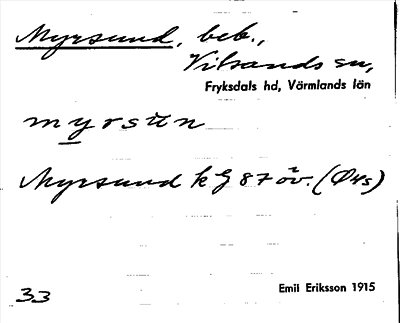 Myrsund, beb.,
Vitsands sn,
Fryksdals hd, Värmlands län
myrsun
Myrsund k G 87 öv. (Ö4s)
33
Emil Eriksson 1915